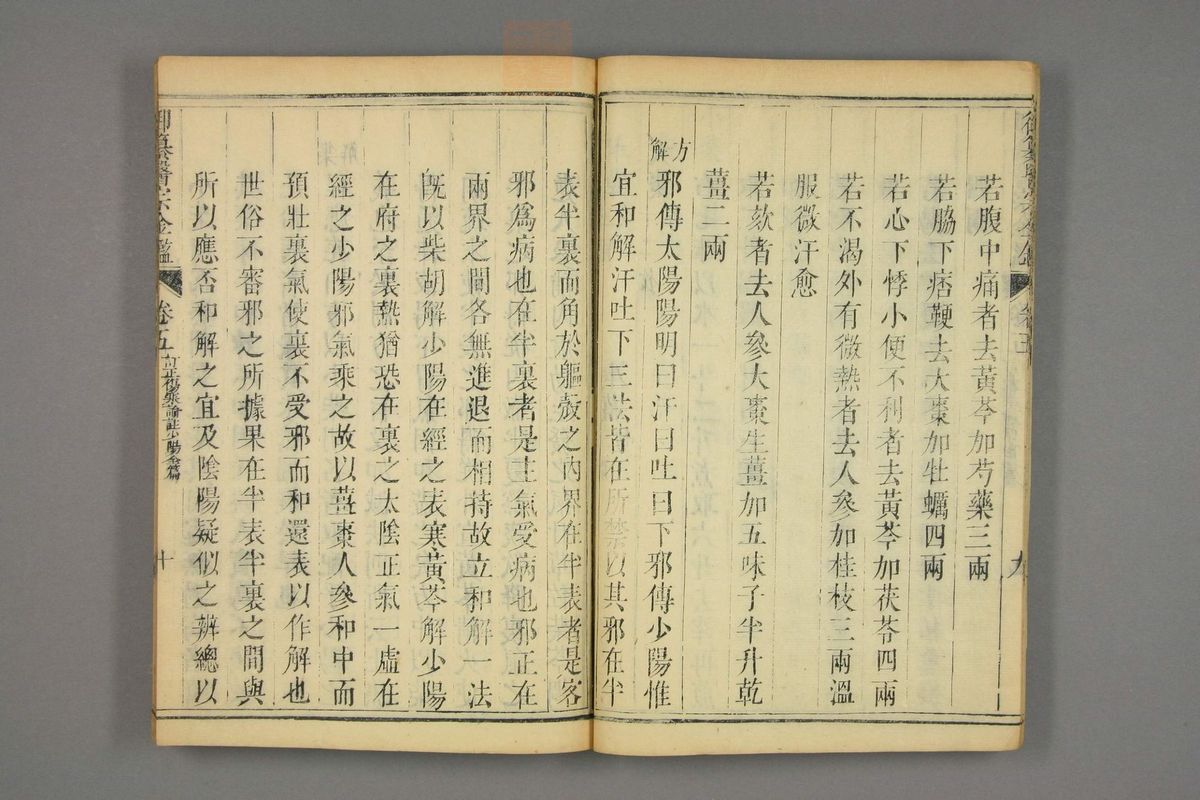 若腹中痛者去黃芩加芍藥三兩
若脇下痞鞕去大棗加牡蠣四兩
若心下悸小便不利者去黃芩加茯苓四兩
若不渴外有微熱者去人參加桂枝三兩溫
服微汗愈
若欬者去人參大棗生薑加五味子半升乾
薑二兩
方解
邪傳太陽陽明曰汗曰吐曰下邪傳少陽惟
宜和解汗吐下三法皆在所禁以其邪在半
九
表半裏而角於軀殼之內界在半表者是客
邪爲病也在半裏者是主氣受病也邪正在
兩界之間各無進退而相持故立和解一法
旣以柴胡解少陽在經之表寒黃芩解少陽
在府之裏熱猶恐在裏之太陰正氣一虛在
經之少陽邪氣乘之故以薑棗人參和中而
預壯裏氣使裏不受邪而和還表以作解也
世俗不審邪之所據果在半表半裏之間與
所以應否和解之宜及陰陽疑似之辨總以
御纂醫宗金鑑
卷五
訂正傷寒論註少陽全篇
十